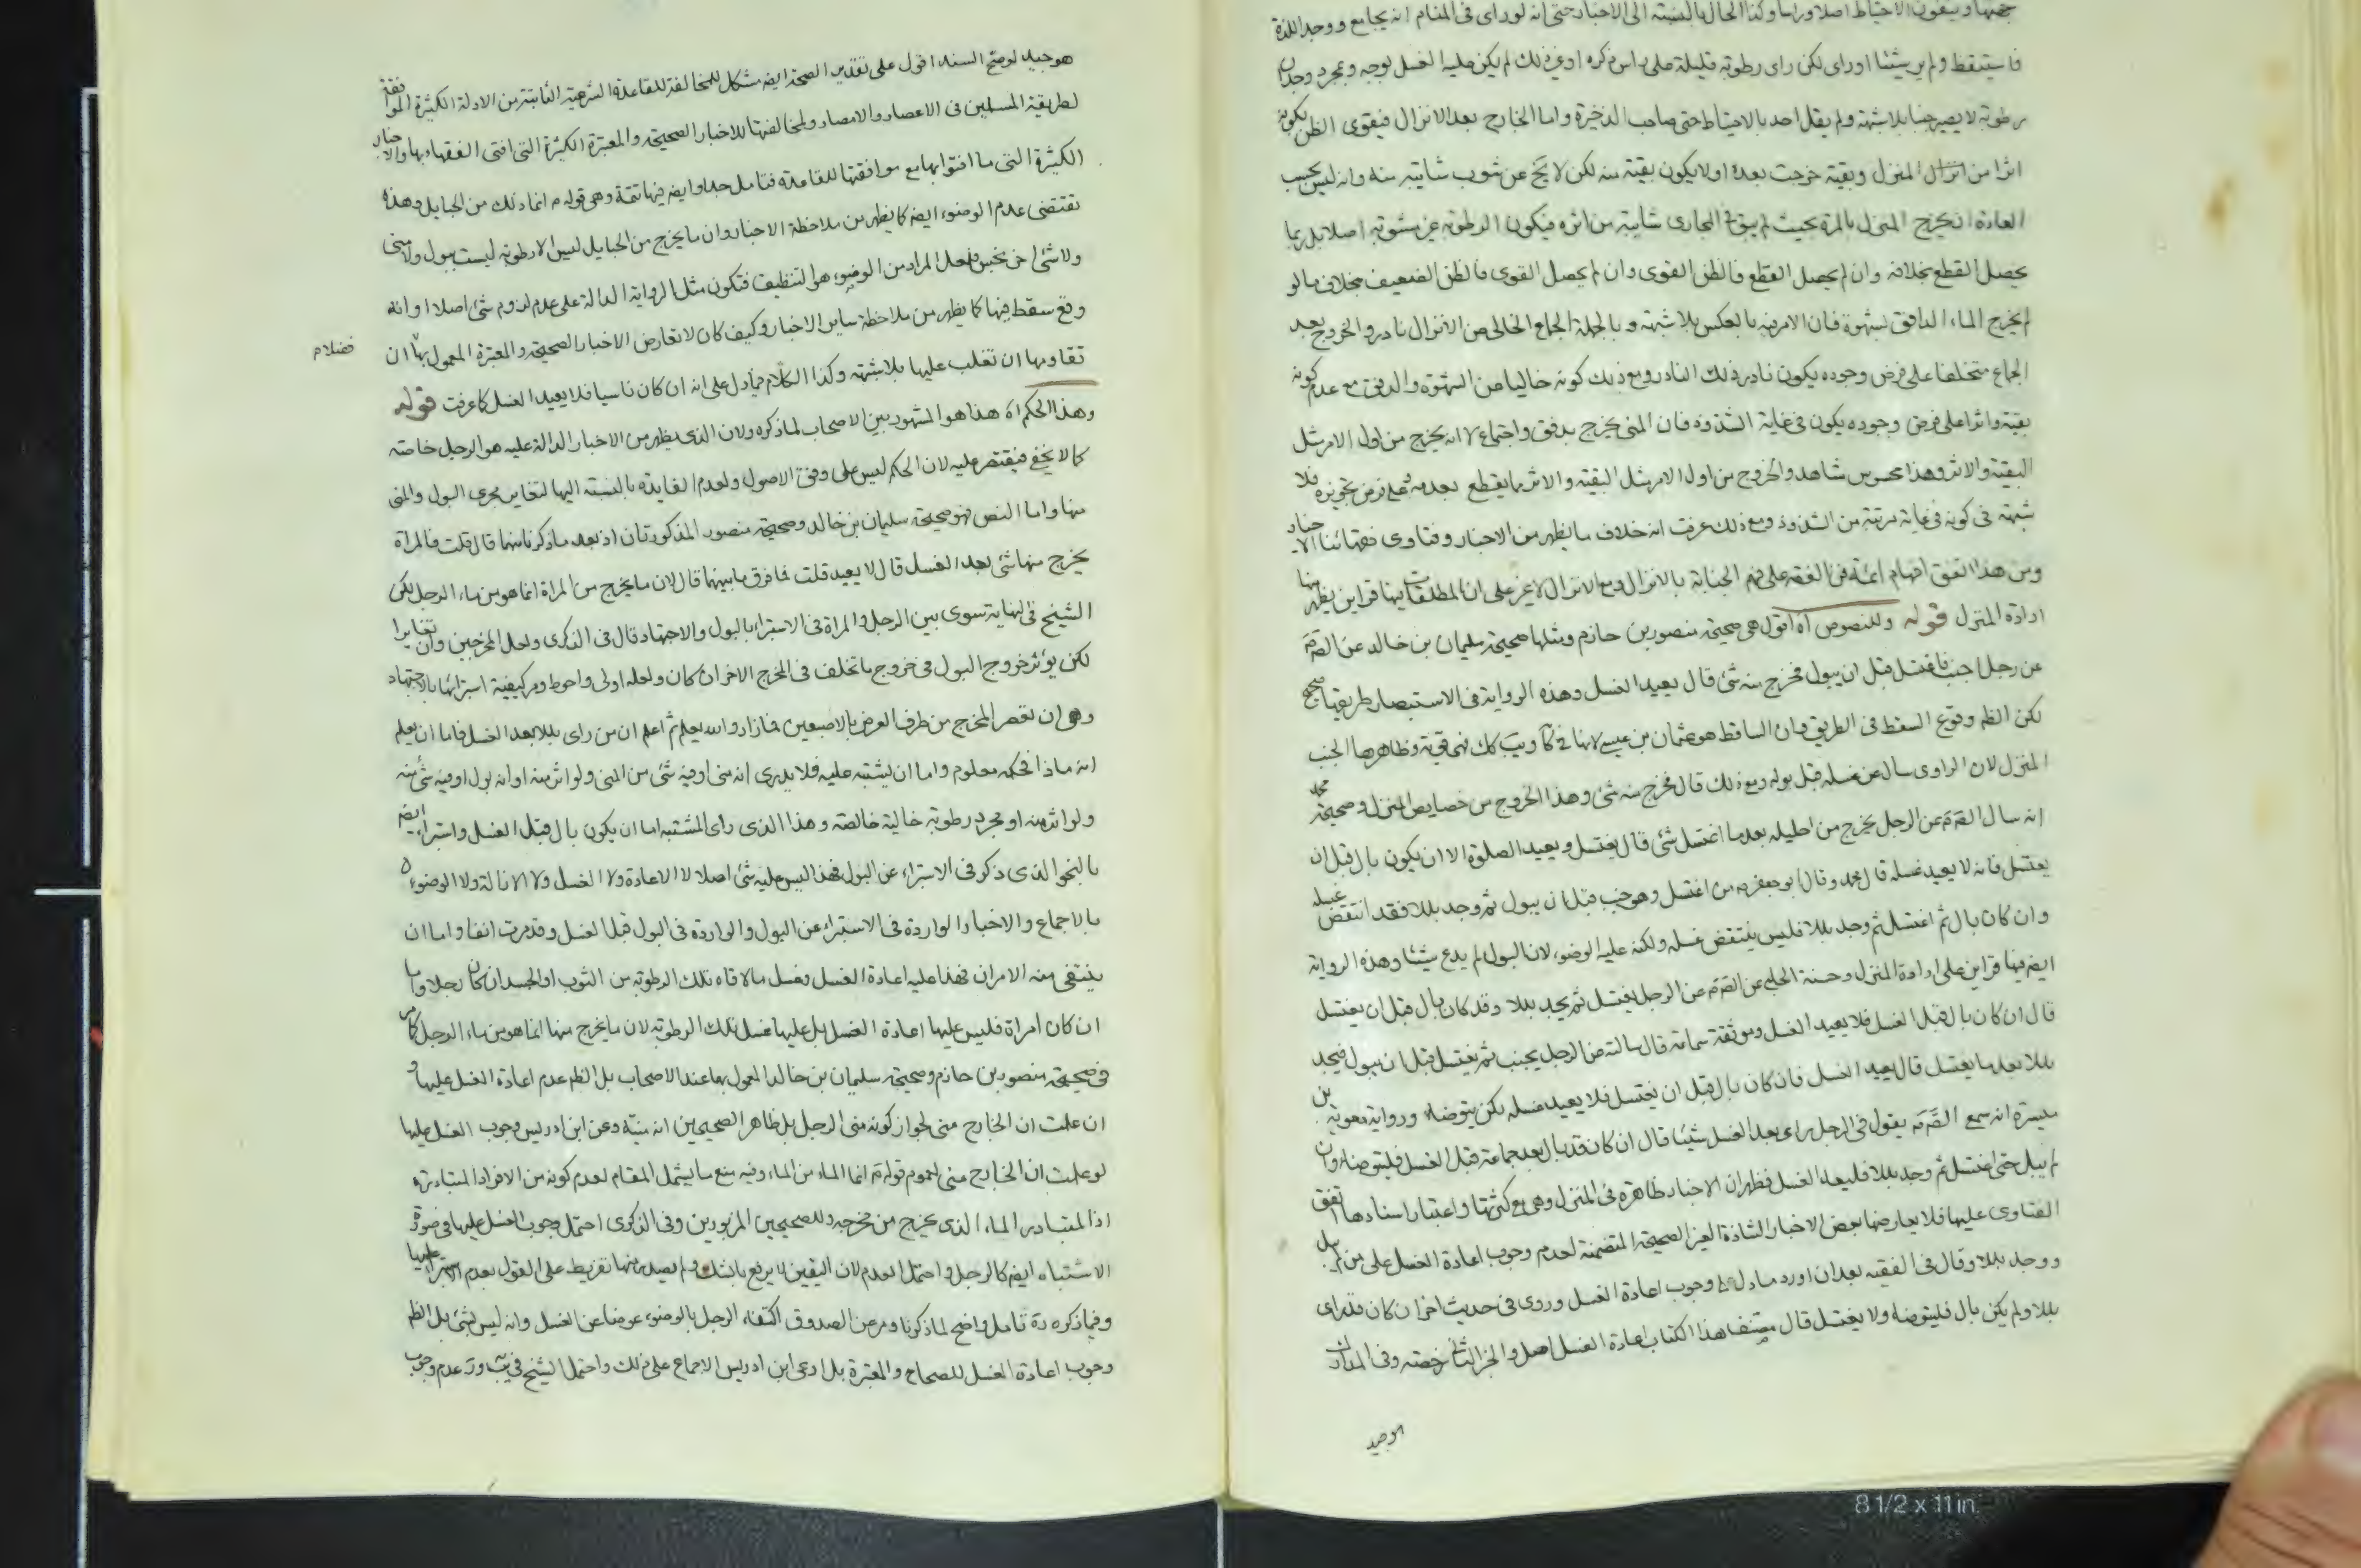 جهها ويبقون الاحتياط اصلا وراسا وكذا الحال بالنسبة الى الاخبار حتى انه لو راى فى المنام انه يجامع ووجد اللذة
فاستيقظ ولم ير شيئا او راى لكن راى رطوبة قليلة على راس ذكره او غير ذلك لم يكن عليه الغسل بوجه وبمجرد وجدان
رطوبة لا يصير جنبا بلا شبهة ولم يقل احد بالاحتياط حتى صاحب الذخيرة واما الخارج بعد الانزال فيقوى الظن بكونه
اثرا من انزال المنزل وبقية خرجت بعده او لا يكون بقية منه لكن لا يخ عن شوب شايبة منه وانه ليس بحسب
العادة ان يخرج المنزل بالمرة بحيث لم يبق فى المجارى شايبة من اثره فيكون الرطوبة غير مشوبة اصلا بل ربما
يحصل القطع بخلافه وان لم يحصل القطع فالظن القوى وان لم يحصل القوى فالظن الضعيف بخلاف ما لو
لم يخرج الماء الدافق بشهوة فان الامر فيه بالعكس بلا شبهة وبالجملة الجماع الخالى من الانزال نادر والخروج بعد
الجماع متخلفا على فرض وجوده يكون نادر ذلك النادر ومع ذلك كونه خاليا من الشهوة والدفق مع عدم كونه
بقية واثرا على فرض وجوده يكون فى غاية الشذوذ فان المنى يخرج بدفق واجتماع لا انه يخرج من اول الامر مثل
البقية والاثر وهذا محسوس شاهد والخروج من اول الامر مثل البقية والاثر مما يقطع بعدمه وعلى فرض تجويزه فلا
شبهة فى كونه فى غاية مرتبة من الشذوذ ومع ذلك عرفت انه خلاف ما يظهر من الاخبار وفتاوى فقهائنا الاخيار
ومن هذا اتفق افهام ائمة فن الفقه على فهم الجنابة بالانزال ومع الانزال لا غير على ان المطلقات فيها قراين يظهر منها
ارادة المنزل قوله وللنصوص اه اقول هى صحيحة منصور بن حازم ومثلها صحيحة سليمان بن خالد عن الصم
عن رجل اجنب فاغتسل قبل ان يبول فخرج منه شئ قال يعيد الغسل وهذه الرواية فى الاستبصار طريقها صحيح
لكن الظم وقوع السقط فى الطريق وان الساقط هو عثمان بن عيسى لانها فى كا ويب كك فهى قوية وظاهرها الجنب
المنزل لان الراوى سال عن غسله قبل بوله ومع ذلك قال فخرج منه شئ وهذا الخروج من خصايص المنزل وصحيحة محمد
انه سال الصم عن الرجل يخرج من احليله بعد ما اغتسل شئ قال يغتسل ويعيد الصلوة الا ان يكون بال قبل ان
يغتسل فانه لا يعيد غسله قال محمد وقال ابو جعفر ع من اغتسل وهو جنب قبل ان يبول ثم وجد بللا فقد انتقض غسله
وان كان بال ثم اغتسل ثم وجد بللا فليس ينتقض غسله ولكنه عليه الوضوء لان البول لم يدع شيئا وهذه الرواية
ايضا فيها قراين على ارادة المنزل وحسنة الحلبى عن الصم عن الرجل يغتسل ثم يجد بللا وقد كان بال قبل ان يغتسل
قال ان كان بال قبل الغسل فلا يعيد الغسل وموثقة سماعة قال سالته عن الرجل يجنب ثم يغتسل قبل ان يبول فيجد
بللا بعد ما يغتسل قال يعيد الغسل فان كان بال قبل ان يغتسل فلا يعيد غسله لكن يتوضاء ورواية معوية بن
ميسرة انه سمع الصم يقول فى الرجل راى بعد الغسل شيئا قال ان كان قد بال بعد جماعه قبل الغسل فليتوضا وان
لم يبل حتى اغتسل ثم وجد بللا فليعد الغسل فظهر ان الاخبار ظاهرة فى المنزل وهى مع كثرتها واعتبار اسنادها اتفق
الفتاوى عليها فلا يعارضها بعض الاخبار الشاذة الغير الصحيحة المتضمنة لعدم وجوب اعادة الغسل على من لم يبل
ووجد بللا وقال فى الفقيه بعد ان اورد ما دل على وجوب اعادة الغسل وروى فى حديث اخر ان كان قد راى
بللا ولم يكن بال فليتوضا ولا يغتسل قال مصنف هذا الكتاب اعادة الغسل اصل والخبر الثانى رخصة وفى المدارك
هو جيد لو صح السند اقول على تقدير الصحة ايضا مشكل للمخالفة للقاعدة الشرعية الثابتة من الادلة الكثيرة الموافقة
لطريقة المسلمين فى الاعصار والامصار ولمخالفتها للاخبار الصحيحة والمعتبرة الكثيرة التى افتى الفقهاء بها والاخبار
الكثيرة التى ما افتوا بها مع موافقتها للقاعدة فتامل جدا وايضا فيها تتمة وهى قوله ع انما ذلك من الحبايل وهذه
تقتضى عدم الوضوء ايضا كما يظهر من ملاحظة الاخبار وان ما يخرج من الحبايل ليس الا رطوبة ليست ببول ولا منى
ولا شئ اخر نجس فلعل المراد من الوضوء هو التنظيف فتكون مثل الرواية الدالة على عدم لزوم شئ اصلا او انه
وقع سقط فيها كما يظهر من ملاحظة ساير الاخبار وكيف كان لا تعارض الاخبار الصحيحة والمعتبرة المعمول بها ان
فضلا م
تقاومها ان تغلب عليها بلا شبهة وكذا الكلام فيما دل على انه ان كان ناسيا فلا يعيد الغسل كما عرفت قوله
وهذا الحكم اه هذا هو المشهور بين الاصحاب لما ذكره ولان الذى يظهر من الاخبار الدالة عليه هو الرجل خاصة
كما لا يخفى فيقتصر عليه لان الحكم ليس على وفق الاصول ولعدم الفايدة بالنسبة اليها لتغاير مجرى البول والمنى
منها واما النص فهو صحيحة سليمان بن خالد وصحيحة منصور المذكورتان اذ بعد ما ذكرنا منهما قال قلت فالمراة
يخرج منها شئ بعد الغسل قال لا يعيد قلت فما فرق ما بينهما قال لان ما يخرج من المراة انما هو من ماء الرجل لكن
الشيخ فى النهاية سوى بين الرجل والمراة فى الاستبراء بالبول والاجتهاد قال فى الذكرى ولعل المخرجين وان تغايرا
لكن يؤثر خروج البول فى خروج ما تخلف فى المخرج الاخر ان كان ولعله اولى واحوط ومر كيفية استبرائها بالاجتهاد
وهو ان تعصر المخرج من طرف العرض بالاصبعين فما زاد والله يعلم ثم اعلم ان من راى بللا بعد الغسل فاما ان يعلم
انه ماذا فحكمه معلوم واما ان يشتبه عليه فلا يدرى انه منى او فيه شئ من المنى ولو اثر منه او انه بول او فيه شئ منه
ولو اثر منه او مجرد رطوبة خالية خالصة وهذا الذى راى المشتبه اما ان يكون بال قبل الغسل واستبراء ايضا
بالنحو الذى ذكر فى الاستبراء عن البول فهذا ليس عليه شئ اصلا لا الاعادة ولا الغسل ولا الازالة ولا الوضوء
بالاجماع والاخبار الواردة فى الاستبراء عن البول والواردة فى البول قبل الغسل وقد مرت انفا واما ان
ينتفى منه الامران فهذا عليه اعادة الغسل وغسل ما لاقاه تلك الرطوبة من الثوب او الجسد ان كان رجلا واما
ان كان امراة فليس عليها اعادة الغسل بل عليها غسل تلك الرطوبة لان ما يخرج منها انما هو من ماء الرجل كما مر
فى صحيحة منصور بن حازم وصحيحة سليمان بن خالد المعمول بهما عند الاصحاب بل الظم عدم اعادة الغسل عليها و
ان علمت ان الخارج منى لجواز كونه منى الرجل بل ظاهر الصحيحين انه منيه وعن ابن ادريس وجوب الغسل عليها
لو علمت ان الخارج منى لعموم قوله ع انما الماء من الماء وفيه منع ما يشمل المقام لعدم كونه من الافراد المتبادرة
اذ المتبادر الماء الذى يخرج من مخرجه وللصحيحين المزبورين وفى الذكرى احتمل وجوب الغسل عليها فى صورة
الاشتباه ايضا كالرجل واحتمل العدم لان اليقين لا يرفع بالشك ولم يصدر منها تفريط على القول بعدم استبراء عليها
وفيما ذكره ره تامل واضح لما ذكرنا ومر عن الصدوق اكتفاء الرجل بالوضوء عوضا عن الغسل وانه ليس بشئ بل الظم
وجوب اعادة الغسل للصحاح والمعتبرة بل ادعى ابن ادريس الاجماع على ذلك واحتمل الشيخ فى يب وصر عدم وجوب